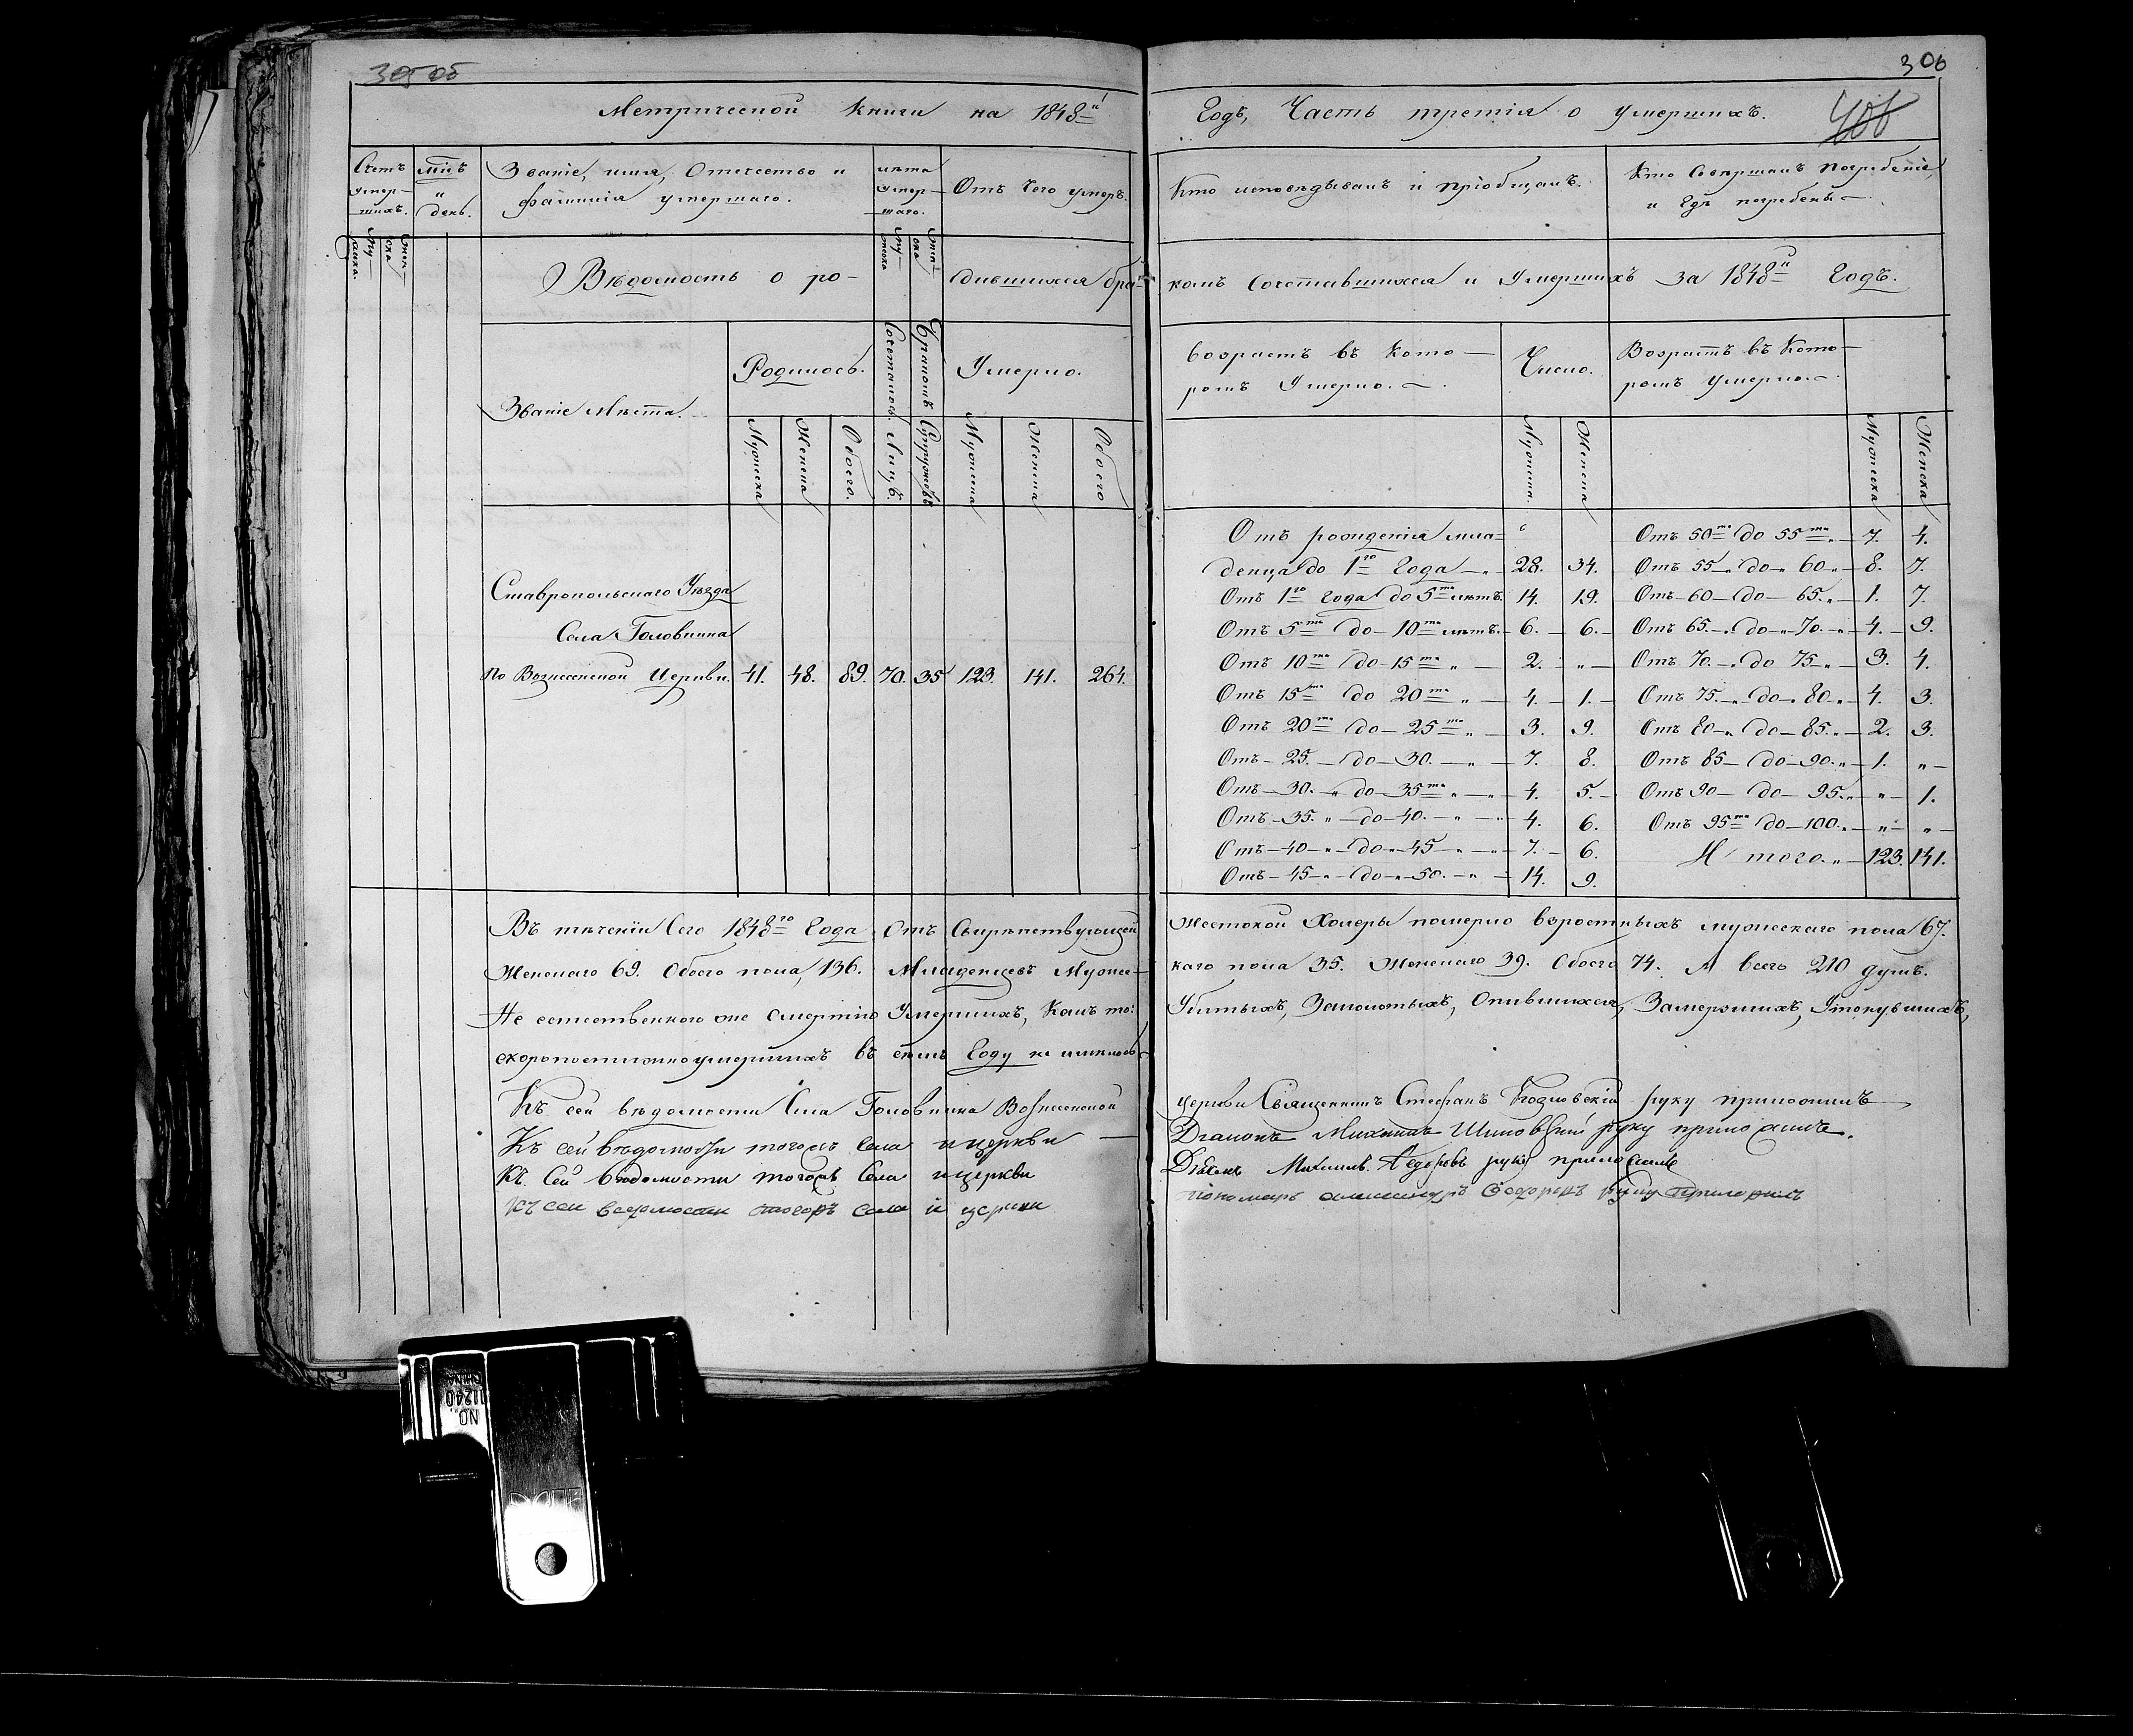 305 об
306
406
Метрической книги на 1848й Годъ, Часть третія о умершихъ.
Счетъ умершихъ.
Мужеска.
Женска
Мцъ и день.
Званіе, имя, Отчество и фамилія умершаго.
лѣта Умершаго.
Мужеска
Женска
Отъ Чего умеръ.
Кто исповѣдывалъ и пріобщалъ.
Кто Совершалъ Погребеніе, и Гдѣ погребены
Вѣдомость о родившихся бракомъ Сочетавшихся и Умершихъ за 1848й Годъ.
Званіе Мѣста.
Родилось.
Мужеска
Женска
Обоего.
Сочеталось Лицъ.
Бракомъ Супруговъ
Умерло.
Мужеска
Женска
Обоего
возрастъ въ которомъ Умерло.
Число.
Мужеска.
Женска
Возрастъ въ которомъ умерло.
Мужеска
Женска
Ставропольскаго Уѣзда
Села Головкина
По Вознесенской Церкви. 41. 48. 89. 70. 35 123. 141. 264.
Отъ рожденія мла-
денца до 1го Года 28. 34.
Отъ 1го года до 5ти лѣтъ. 14. 19.
Отъ 5ти до 10ти лѣтъ. 6. 6.
Отъ 10ти до 15ти " 2. "
Отъ 15ти до 20ти " 4. 1.
Отъ 20ти до 25ти " 3. 9.
Отъ 25. до 30. " 7. 8.
Отъ 30. " до 35ти " 4. 5.
Отъ 35. " до 40. " 4. 6.
Отъ 40 " до 45 " 7. 6.
Отъ 45 " до 50. " 14. 9.
Отъ 50ти до 55ти " 7. 4.
Отъ 55 " до 60 " 8. 7.
Отъ 60 до 65. " 1. 7.
Отъ 65. " до 70. " 4. 9.
Отъ 70. " до 75 " 3. 4.
Отъ 75. " до 80 " 4. 3.
Отъ 80 " до 85. " 2. 3.
Отъ 85 до 90. " 1. "
Отъ 90 до 95. " " 1.
Отъ 95ти до 100. " " "
И того. " 123. 141.
Въ теченіи Сего 1848го Года Отъ Свирепствующей Жестокой Холеры померло взрослыхъ мужескаго пола 67.
Женскаго 69. Обоего пола, 136. Младенцевъ Мужескаго пола 35. Женскаго 39. Обоего 74. А всего 210 душъ.
Не естественною же смертію Умершихъ, Какъ то: Убитыхъ, Заколотыхъ, Опившихся, Замерзшихъ, Утонувшихъ,
скоропостижно умершихъ въ семъ Году не имѣлось
Къ сей вѣдомости Села Головкина Вознесенской церкви Священникъ Стефанъ Козловскій руку приложилъ
Къ сей вѣдомости тогожъ села и церкви Діаконъ Михаилъ руку приложилъ.
Къ Сей вѣдомости тогожъ Села и церкви Федоровъ руку приложилъ
Къ сей ведомости тогожъ села и церкви пономарь руку приложилъ
NO.
01240
CHINA